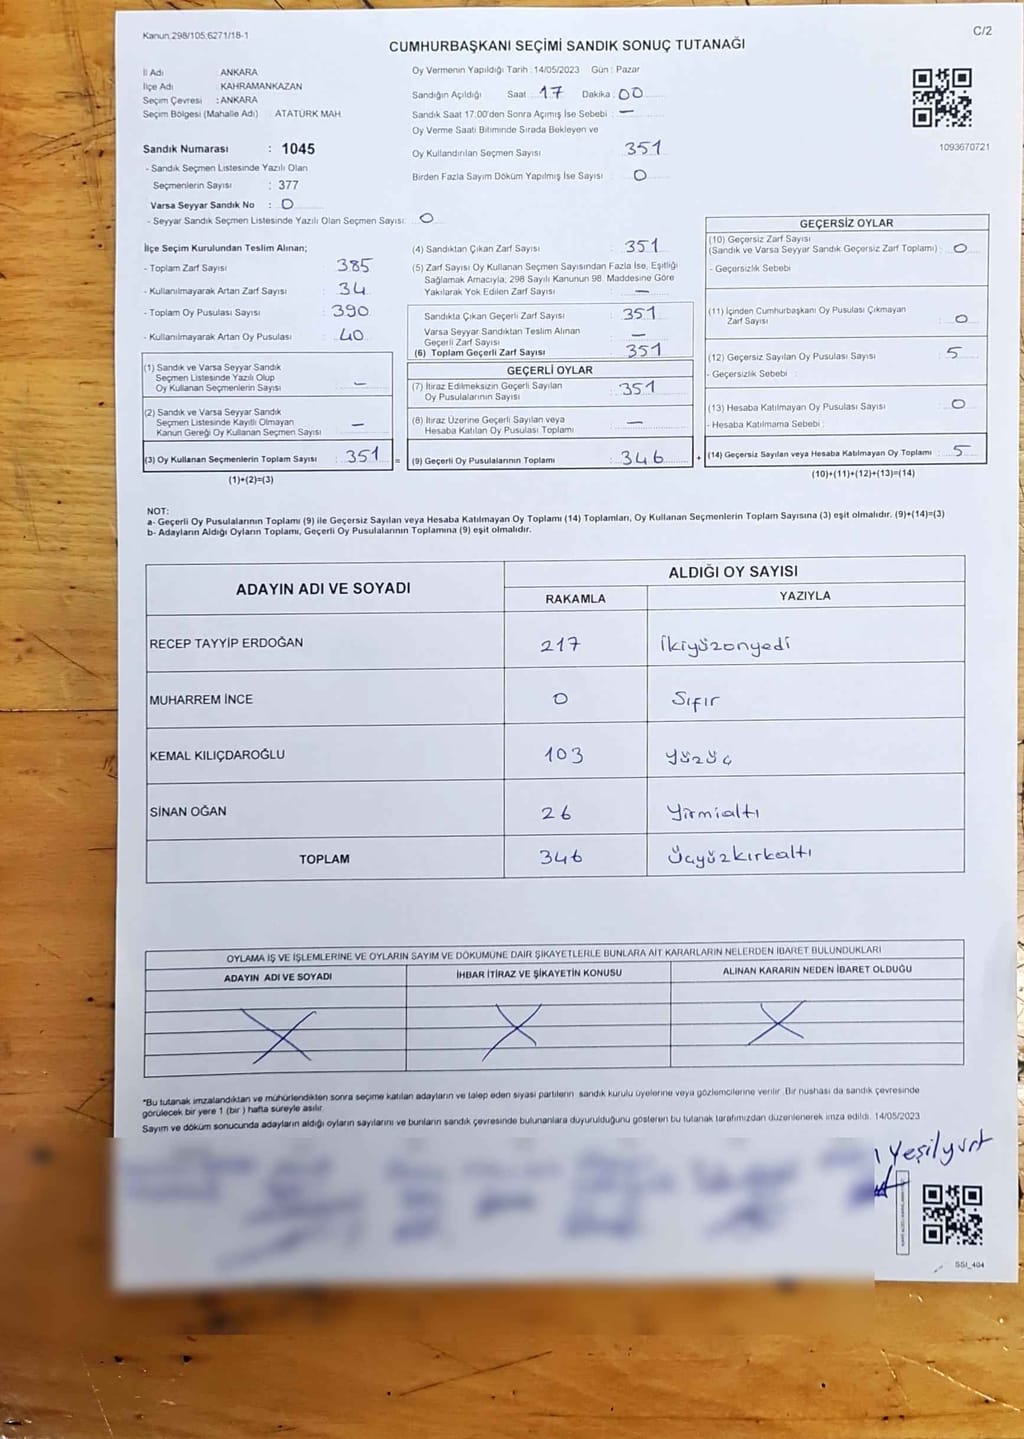 Kanun:298/105;6271/18-1
C/2
CUMHURBAŞKANI SEÇİMİ SANDIK SONUÇ TUTANAĞI
İl Adı : ANKARA
İlçe Adı : KAHRAMANKAZAN
Seçim Çevresi : ANKARA
Seçim Bölgesi (Mahalle Adı) : ATATÜRK MAH.
Sandık Numarası : 1045
- Sandık Seçmen Listesinde Yazılı Olan
Seçmenlerin Sayısı : 377
Varsa Seyyar Sandık No : 0
- Seyyar Sandık Seçmen Listesinde Yazılı Olan Seçmen Sayısı: 0
Oy Vermenin Yapıldığı Tarih : 14/05/2023 Gün : Pazar
Sandığın Açıldığı Saat : 17 Dakika : 00
Sandık Saat 17.00'den Sonra Açımış İse Sebebi : —
Oy Verme Saati Bitiminde Sırada Bekleyen ve
Oy Kullandırılan Seçmen Sayısı : 351
Birden Fazla Sayım Döküm Yapılmış İse Sayısı : 0
1093670721
İlçe Seçim Kurulundan Teslim Alınan;
- Toplam Zarf Sayısı : 385
- Kullanılmayarak Artan Zarf Sayısı : 34
- Toplam Oy Pusulası Sayısı : 390
- Kullanılmayarak Artan Oy Pusulası : 40
(1) Sandık ve Varsa Seyyar Sandık
Seçmen Listesinde Yazılı Olup
Oy Kullanan Seçmenlerin Sayısı : —
(2) Sandık ve Varsa Seyyar Sandık
Seçmen Listesinde Kayıtlı Olmayan
Kanun Gereği Oy Kullanan Seçmen Sayısı : —
(3) Oy Kullanan Seçmenlerin Toplam Sayısı : 351
(1)+(2)=(3)
(4) Sandıktan Çıkan Zarf Sayısı : 351
(5) Zarf Sayısı Oy Kullanan Seçmen Sayısından Fazla İse, Eşitliği
Sağlamak Amacıyla; 298 Sayılı Kanunun 98. Maddesine Göre
Yakılarak Yok Edilen Zarf Sayısı : —
Sandıkta Çıkan Geçerli Zarf Sayısı : 351
Varsa Seyyar Sandıktan Teslim Alınan
Geçerli Zarf Sayısı : —
(6) Toplam Geçerli Zarf Sayısı : 351
GEÇERLİ OYLAR
(7) İtiraz Edilmeksizin Geçerli Sayılan
Oy Pusulalarının Sayısı : 351
(8) İtiraz Üzerine Geçerli Sayılan veya
Hesaba Katılan Oy Pusulası Toplamı : —
= (9) Geçerli Oy Pusulalarının Toplamı : 346
GEÇERSİZ OYLAR
(10) Geçersiz Zarf Sayısı
(Sandık ve Varsa Seyyar Sandık Geçersiz Zarf Toplamı) : 0
- Geçersizlik Sebebi
(11) İçinden Cumhurbaşkanı Oy Pusulası Çıkmayan
Zarf Sayısı : 0
(12) Geçersiz Sayılan Oy Pusulası Sayısı : 5
- Geçersizlik Sebebi :
(13) Hesaba Katılmayan Oy Pusulası Sayısı : 0
- Hesaba Katılmama Sebebi :
+ (14) Geçersiz Sayılan veya Hesaba Katılmayan Oy Toplamı : 5
(10)+(11)+(12)+(13)=(14)
NOT:
a- Geçerli Oy Pusulalarının Toplamı (9) ile Geçersiz Sayılan veya Hesaba Katılmayan Oy Toplamı (14) Toplamları, Oy Kullanan Seçmenlerin Toplam Sayısına (3) eşit olmalıdır. (9)+(14)=(3)
b- Adayların Aldığı Oyların Toplamı, Geçerli Oy Pusulalarının Toplamına (9) eşit olmalıdır.
ADAYIN ADI VE SOYADI ALDIĞI OY SAYISI
RAKAMLA YAZIYLA
RECEP TAYYİP ERDOĞAN 217 İkiyüzonyedi
MUHARREM İNCE 0 Sıfır
KEMAL KILIÇDAROĞLU 103 Yüzüç
SİNAN OĞAN 26 Yirmialtı
TOPLAM 346 Üçyüzkırkaltı
OYLAMA İŞ VE İŞLEMLERİNE VE OYLARIN SAYIM VE DÖKÜMÜNE DAİR ŞİKAYETLERLE BUNLARA AİT KARARLARIN NELERDEN İBARET BULUNDUKLARI
ADAYIN ADI VE SOYADI İHBAR İTİRAZ VE ŞİKAYETİN KONUSU ALINAN KARARIN NEDEN İBARET OLDUĞU
*Bu tutanak imzalandıktan ve mühürlendikten sonra seçime katılan adayların ve talep eden siyasi partilerin sandık kurulu üyelerine veya gözlemcilerine verilir. Bir nüshası da sandık çevresinde
görülecek bir yere 1 (bir) hafta süreyle asılır.
Sayım ve döküm sonucunda adayların aldığı oyların sayılarını ve bunların sandık çevresinde bulunanlara duyurulduğunu gösteren bu tutanak tarafımızdan düzenlenerek imza edildi. 14/05/2023
Yeşilyurt
SSI_404